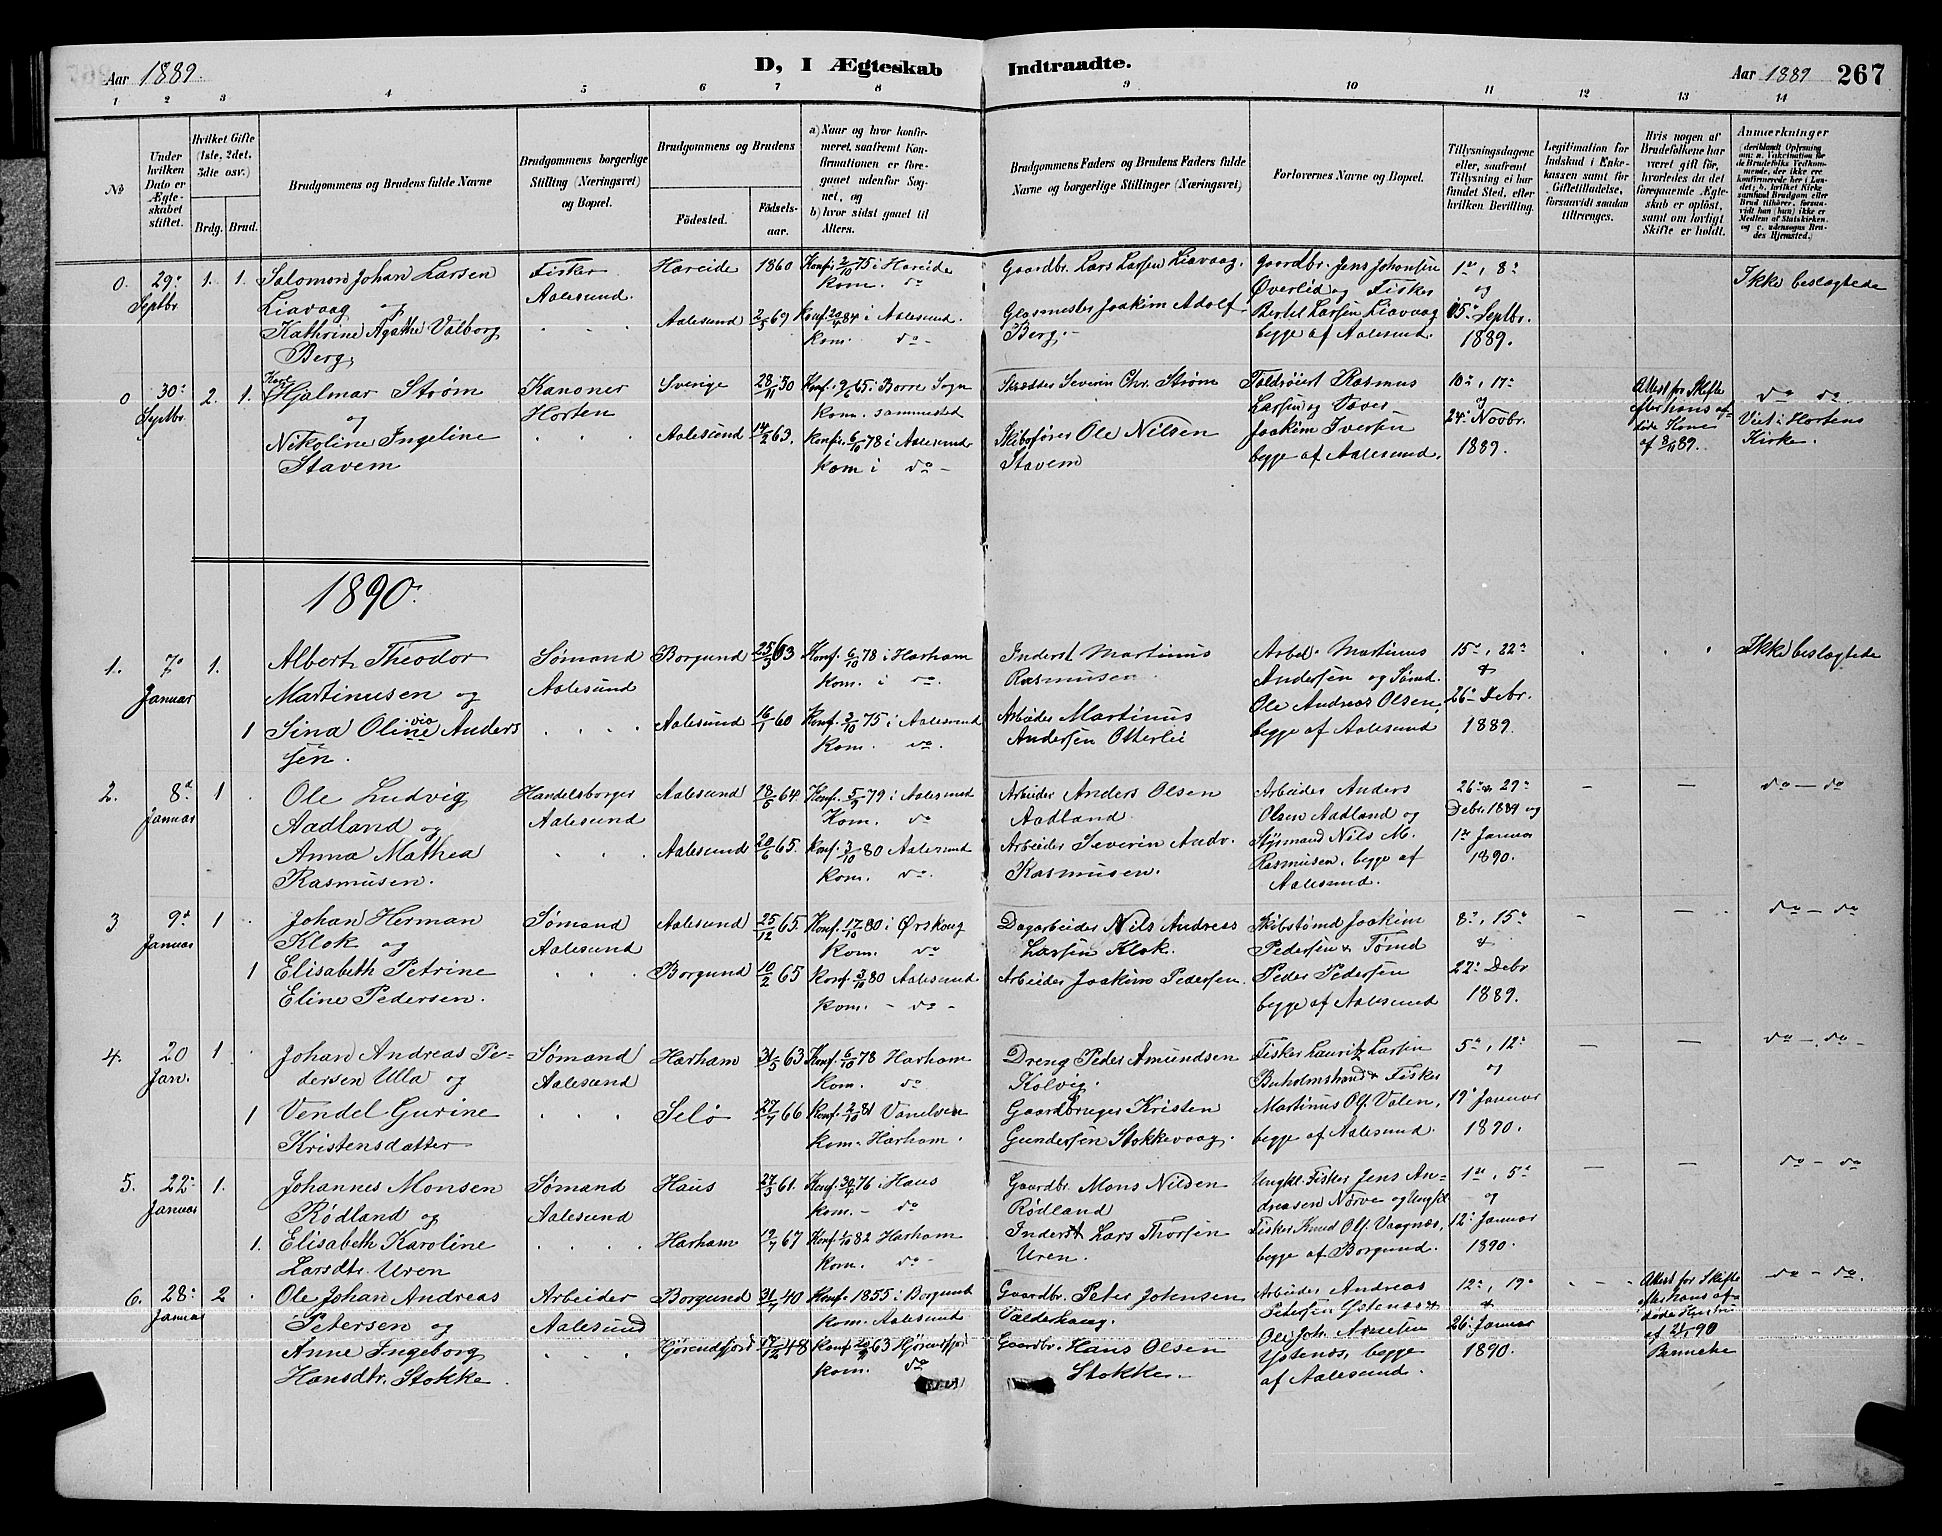 Aar 1889.
D, I Ægteskab Indtraadte.
Aar 1889
267
1 2 3 4 5 6 7 8 9 10 11 12 13 14
No
Under hvilken Dato er Ægteskabet stiftet.
Hvilket Gifte (1ste, 2det, 3die osv.)
Brdg. Brud.
Brudgommens og Brudens fulde Navne
Brudgommens borgerlige Stilling (Næringsvei) og Bopæl.
Brudgommens og Brudens
Födested. Födsels-aar.
a) Naar og hvor konfirmeret, saafremt Konfirmationen er foregaaet udenfor Sognet, og
b) hvor sidst gaaet til Alters.
Brudgommens Faders og Brudens Faders fulde Navne og borgerlige Stillinger (Næringsvei)
Forlovernes Navne og Bopæl.
Tillysningsdagene eller, saafremt Tillysning ei har fundet Sted, efter hvilken Bevilling.
Legitimation for Indskud i Enkekassen samt for Giftetilladelse, forsaavidt saadan tiltrænges.
Hvis nogen af Brudefolkene har været gift för, hvorledes da det foregaaende Ægteskab er oplöst, samt om lovligt Skifte er holdt.
Anmærkninger
0. 29de Septbr 1. 1.
Salomon Johan Larsen
Liavaag og
Kathrine Agathe Valborg
Berg
Fisker
Aalesund.
Hareide 1860
Aalesund 2/5 69
Konf. 3/10 75 i Hareide
Kom. do
i Aalesund.
Kom. do -
Gaardbr. Lars Larsen Liavaag.
Glasmester Joakim Adolf
Berg.-
Gaardbr. Jens Johansen
Overlid og Fisker
Bertel Larsen Liavaag
begge af Aalesund.
1ste, 8de
og
15de Septbr.
1889.
Ikke beslægtede
0 30te Septbr. 2. 1.
Hjalmar Strøm
og
Nikoline Ingeline
Stavem
Kanoner
Horten
Sverige 28/11 50
Aalesund 14/2 63.
Konf. 9/6 65. i Borre Sogn
Kom. sammested
Konfr. 6/10 78 i Aalesund
Kom i do -
Severin Chr. Strøm
Skibsfører Ole Nilsen
Stavem
Rasmus
Larsen og
Joakim Iversen
begge af Aalesund.
10de, 17de
og
24de Novbr.
1889.
Attest for Skifte
efter hans af-
døde Kone
do do.
Viet i Hortens
Kirke.
1890.
1. 7de Januar 1. 1
Albert Theodor
Martinusen og
Sina Oline Anders
sen.
Sømand
Aalesund
Borgund 25/3 63
Aalesund 16/1 60
Konf. 6/10 78 i Harham
Kom. i do.
Konf. 3/10 75 i Aalesund
Kom. do.
Inderst Martinus
Rasmusen.
Arbeider Martinus
Andersen Otterlei
Arbd. Martinus
Andersen og Sømd.
Ole Andreas Olsen,
begge af Aalesund
15de, 22de
&
26de Debr.
1889.
Ikke beslægtede
2. 8de Januar 1
Ole Ludvig
Aadland og
Anna Mathea
Rasmusen.
Handelsborger
Aalesund
Aalesund 18/5 64.
Aalesund 20/6 65.
Konf. 5/9 79 i Aalesund
Kom. do
Konf. 3/10 80 Aalesund
Kom. do.
Arbeider Anders Olsen
Aadland.
Arbeider Severin Andr.
Rasmusen.
Arbeider Anders
Olsen Aadland og
Styrmand Nils M.
Rasmusen, begge af
Aalesund.
26de & 29de
Debr. 1889 og
1ste Januar
1890.
do - do
3 9de Januar 1 1
Johan Herman
Klok og
Elisabeth Petrine
Eline Pedersen.
Sømand
Aalesund
Aalesund 25/12 65.
Borgund 10/2 65
Konf. 17/10 80 i Ørskoug
Kom. do
Konf. 3/10 80 Aalesund
Kom. - do -
Dagarbeider Nils Andreas
Larsen Klok.
Arbeider Joakim Pedersen.
Skibstømd Joakim
Pedersen & Tømd
Peder Pedersen
begge af Aalesund
8de, 15de
&
22de Debr
1889.
do - do
4. 20 Jan. 1 1
Johan Andreas Pe-
dersen Ulla og
Vendel Gurine
Kristensdatter
Sømand
Aalesund
Harham 31/5 63
Selø 27/7 66
Konf. 6/10 78 Harham
Kom. do
Konf. 2/10 81 Vanelven
Kom. Harham.
Dreng Peder Amundsen
Kolvig.
Gaardbruger Kristen
Gundersen Stokkevaag.
Fisker Lauritz Larsen
Buholmstrand & Fisker
Martinus Ol. Valen,
begge af Aalesund.
5te, 12te
og
19de Januar
1890.
do - do -
5. 22de Januar 1. 1.
Johannes Monsen
Rødland og
Elisabeth Karoline
Larsdtr. Uren
Sømand
Aalesund
Haus 27/3 61.
Harham 19/7 67
Konf. 30/4 76 i Haus
Kom. - do
Konf. 1/10 82 Harham
Kom. do -
Gaardbr. Mons Nilsen
Rødland
Inderst Lars Thorsen
Uren.
Ungkl. Fisker Jens An-
dreasen Nørve og Ungkl
Fisker Knud Ol. Vaagnæs,
begge af Borgund.
1ste, 5te
og
12te Januar
1890.
do - do
6. 28de Januar 2
Ole Johan Andreas
Petersen og
Anne Ingeborg
Hansdtr. Stokke.
Arbeider
Aalesund
Borgund 31/7 40
Hjørendfjord 17/12 48
Konf. 1855 i Borgund
Kom. Aalesund
63 Hjørendfjord
Kom. do
Gaardbr. Peter Johnsen
Valderhaug.
Gaardbr. Hans Olsen
Stokke.
Arbeider Andreas
Pedersen Ystenæs &
Ole Joh. Arnesen
Ystenæs, begge
af Aalesund.
12te, 19de
&
26de Januar
1890.
Attest for Skifte
efter hans af-
døde Hustru
do - do.